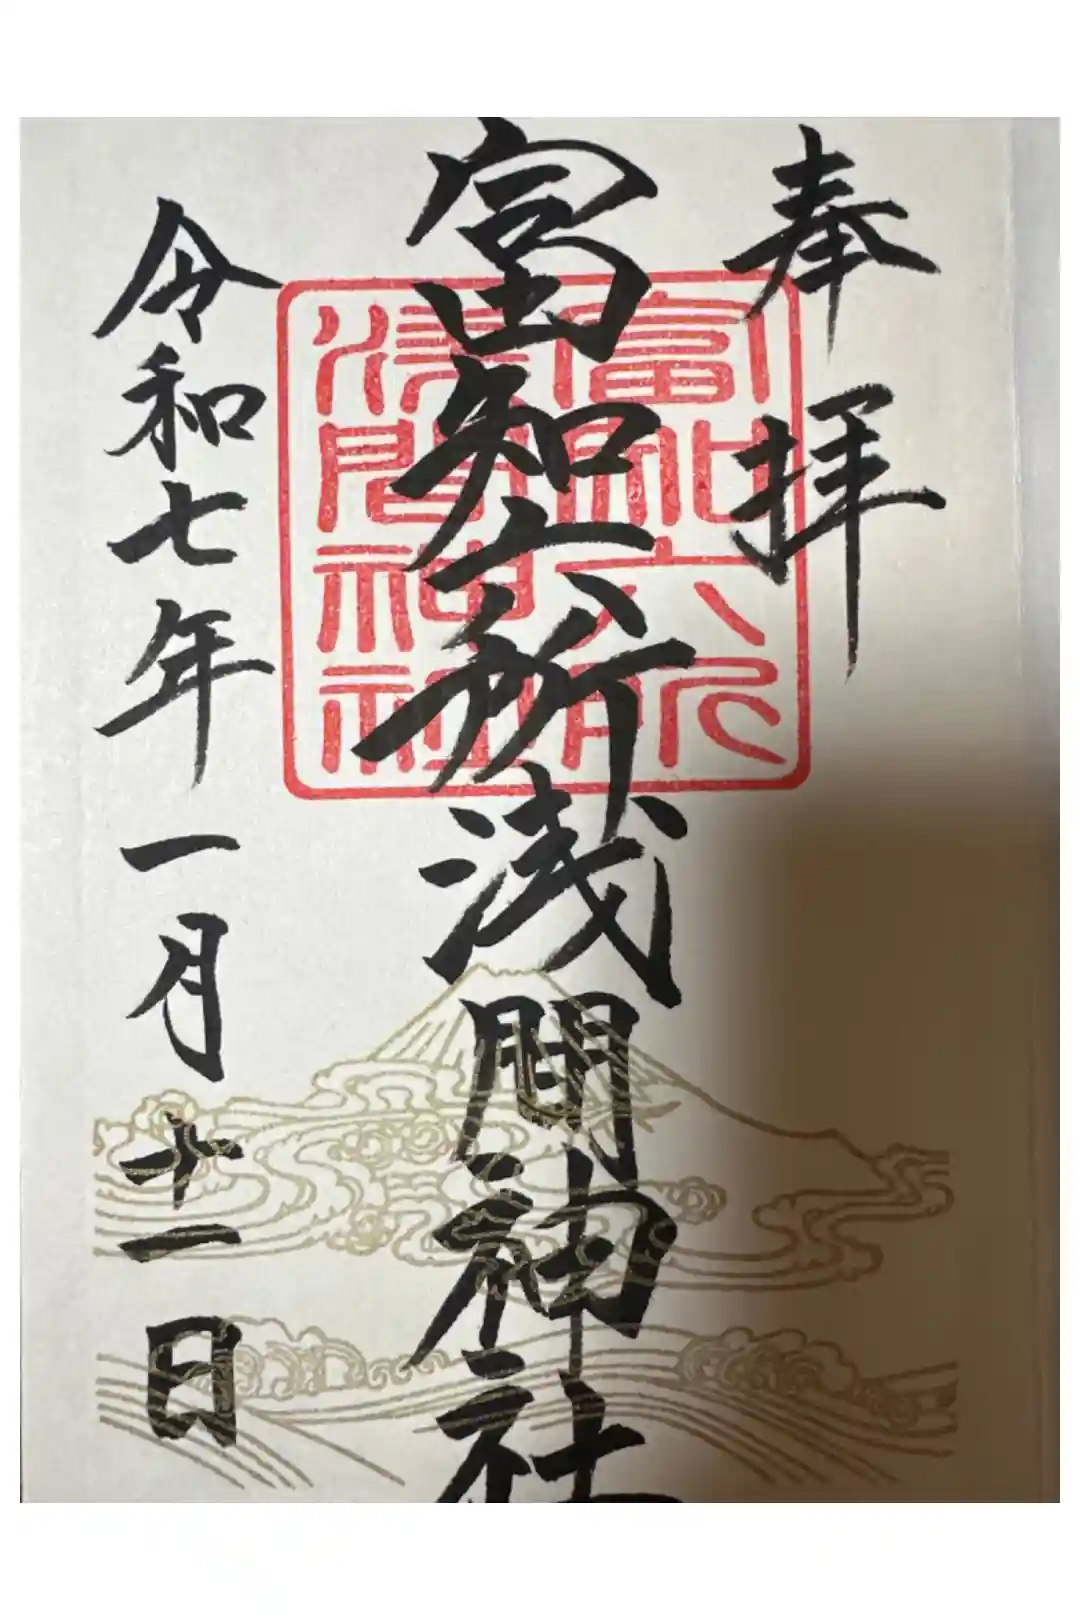 奉拝
富知六所浅間神社
令和七年一月十一日
富知六所
浅間神社